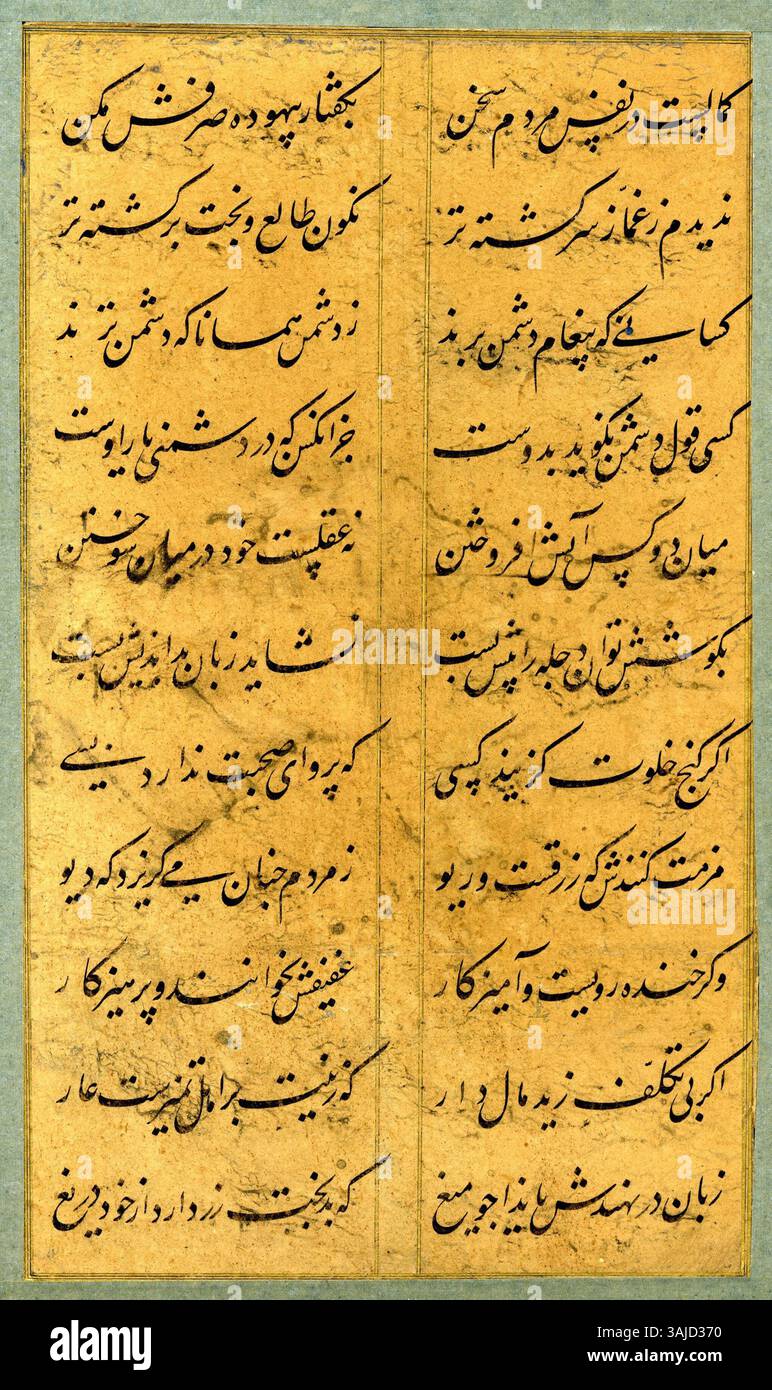 کمالست در نفس مردم سخن بگفتار بیهوده صرفش مکن
ندیدم ز غمّاز سرگشته تر نکون طالع و بخت برگشته تر
کسانی که پیغام دشمن برند ز دشمن همانا که دشمن ترند
کسی قول دشمن نکوید بدوست جز انکس که در دشمنی یار اوست
میان دو کس آتش افروختن نه عقلست خود در میان سوختن
بکوشش توان دجله را پیش بست نشاید زبان بداندیش بست
اکر کنج خلوت کزیند کسی که پروای صحبت ندارد بسی
مزمت کنندش که زرقست و ریو ز مردم چنان می کریزد که دیو
وکر خنده رویست و آمیزکار عفیفش نخوانند و پرهیزکار
اکر بی تکلّف زید مال دار که زینت بر اهل تمیزست عار
زبان در نهندش بایذا چو میغ که بدبخت زر دارد از خود دریغ
alamy
Image ID: 3AJD370
www.alamy.com